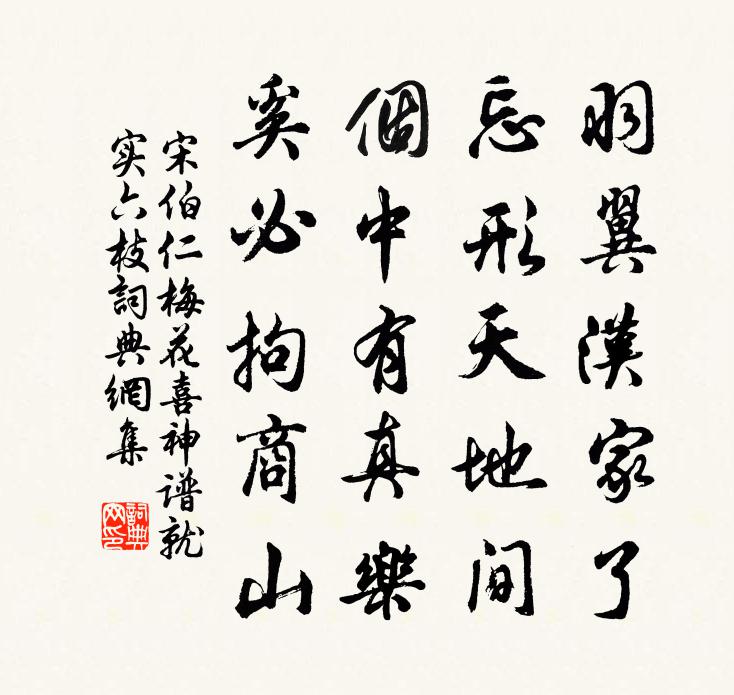 羽翼漢家了
忘形天地间
個中有真樂
奚必拘商山
宋伯仁梅花喜神谱就
实六枝詞典網集
詞典网印